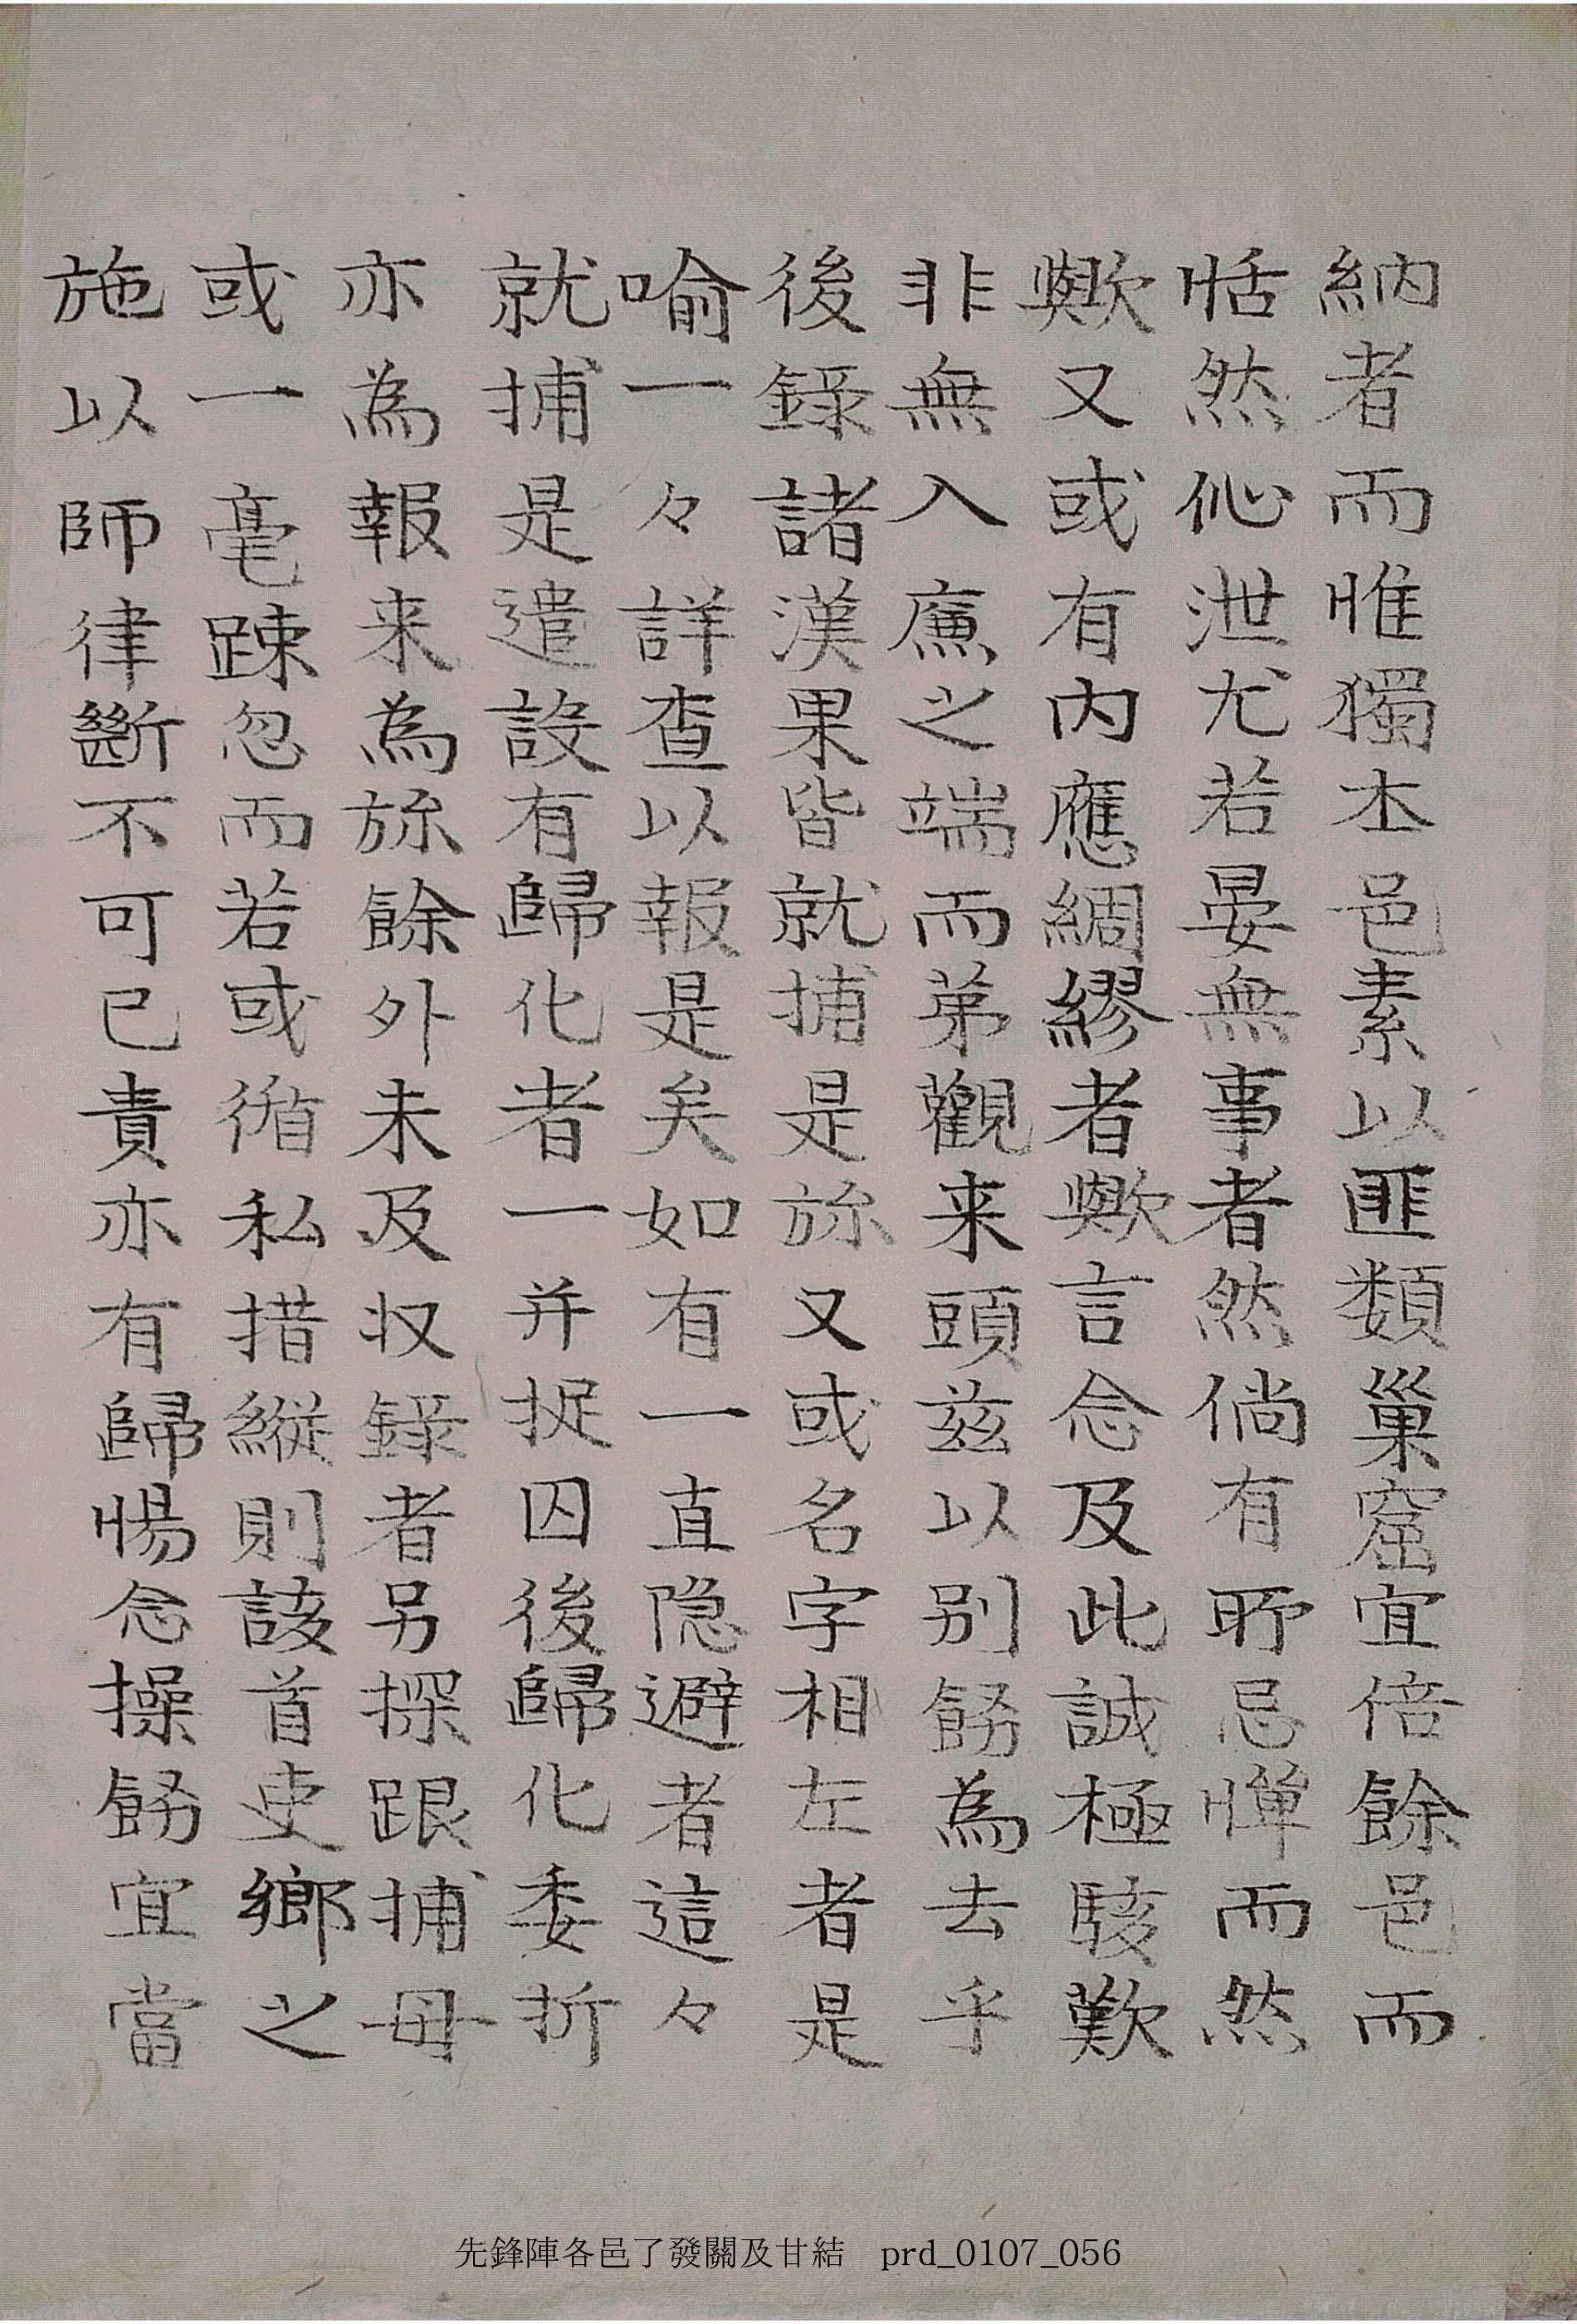 納者而惟獨本邑素以匪類巢窟宜倍餘邑而
恬然伈泄尤若晏無事者然倘有所忌憚而然
歟又或有内應綢繆者歟言念及此誠極駭歎
非無入廉之端而第觀来頭玆以別飭為去乎
後錄諸漢果皆就捕是旀又或名字相左者是
喩一々詳查以報是矣如有一直隐避者這々
就捕是遣設有歸化者一并捉囚後歸化委折
亦為報来為旀餘外未及収錄者另探跟捕毋
或一毫踈忽而若或循私措縱則該首吏鄉之
施以師律斷不可已責亦有歸惕念操飭宜當
先鋒陣各邑了發關及甘結 prd_0107_056